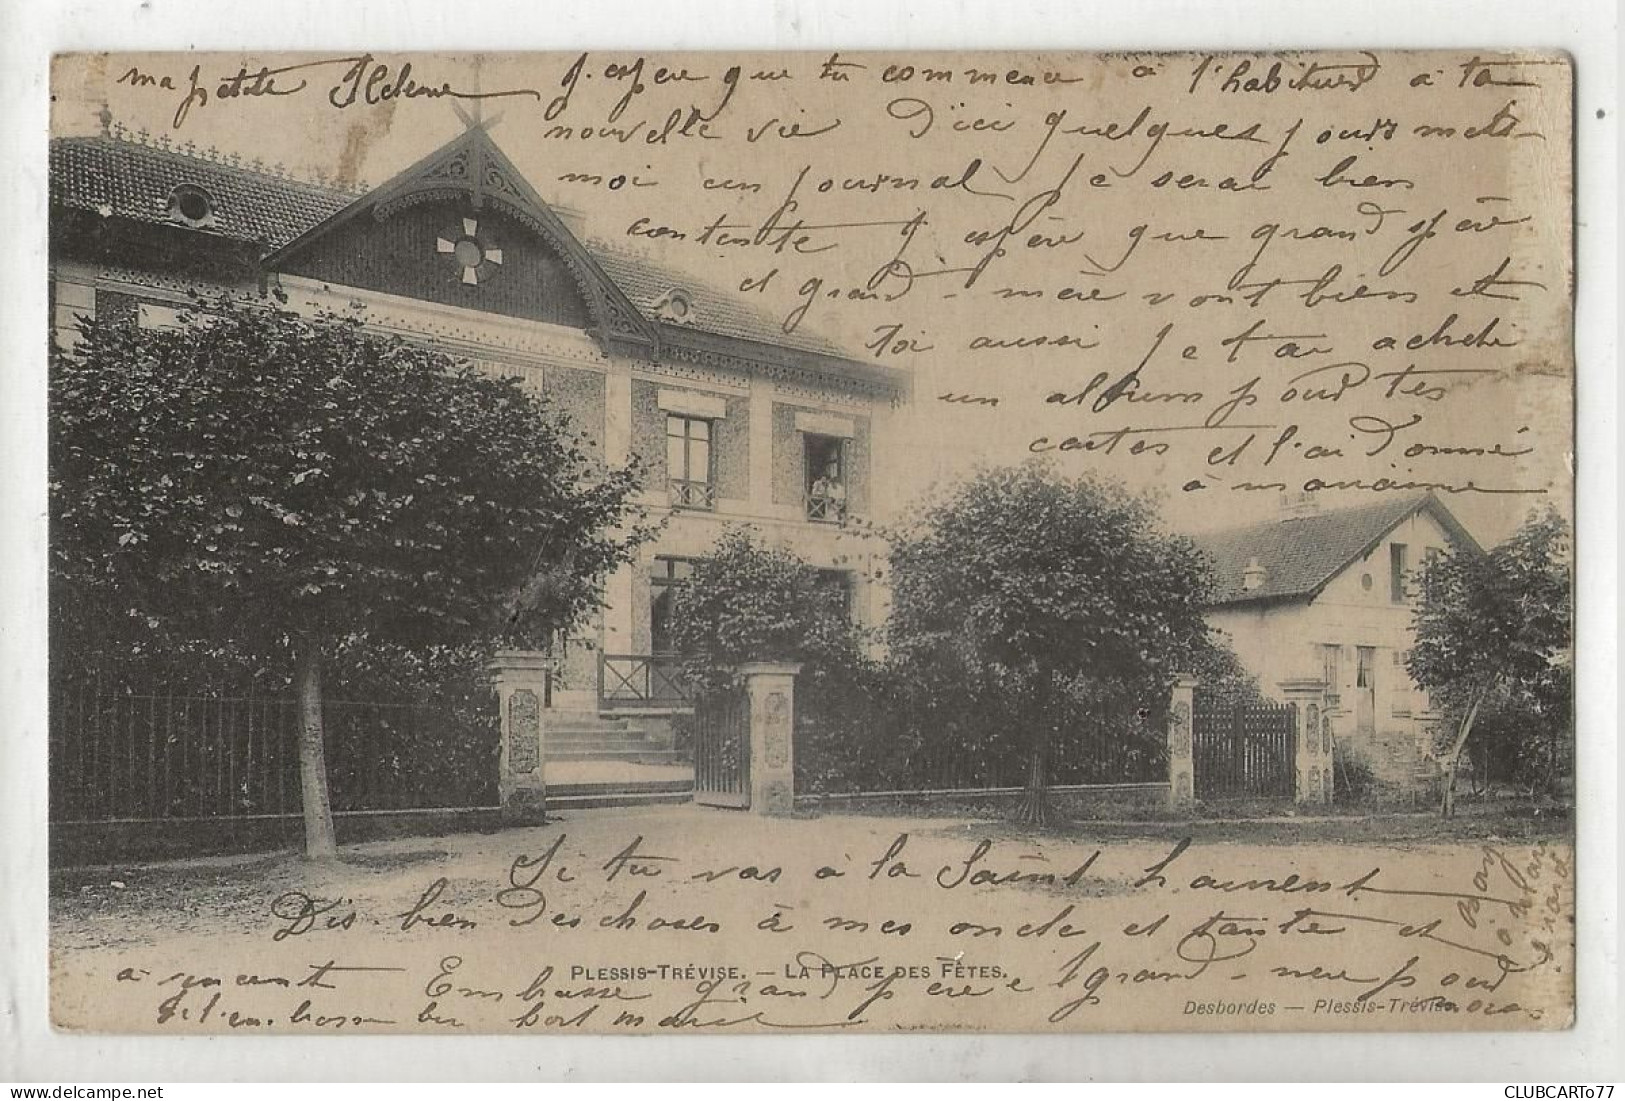 ma petite Helene J'espère que tu commence à t'habitued à ta
nouvelle vie D'ici quelques jours mets-
moi un journal Je serai bien
contente J'espère que grand père
et grand-mère vont bien et
toi aussi Je t'ai acheté
un album pour tes
cartes et l'ai donné
à
Si tu vas à la Saint Laurent
Dis bien des choses à mes oncle et tante et
à Embrasse grand père et grand-mère pour
nous
Je t'embrasse bien fort
PLESSIS-TRÉVISE. — LA PLACE DES FÊTES.
Desbordes — Plessis-Trévise
CLUBCARTo77